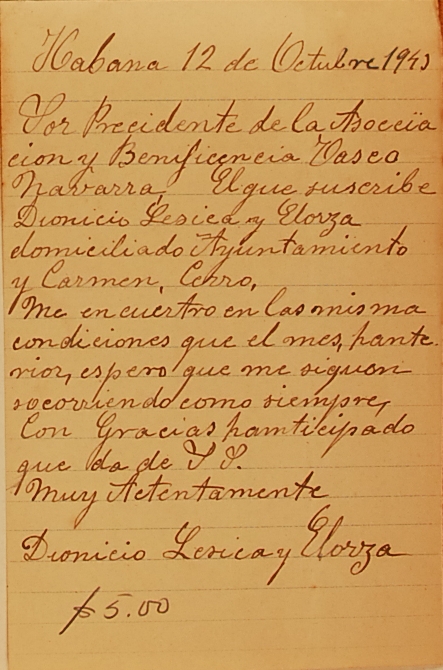 Habana 12 de Octubre 1943
Sor Precidente de la Asoccia
cion y Benificencia Vasco
Navarra, El que suscribe
Dionicio Lesica y Elorza
domiciliado Ayuntamiento
y Carmen, Cerro,
Me encuertro en las misma
condiciones que el mes, hante
rior, espero que me siguan
socorriendo como siempre,
Con Gracias hamticipado
que da de S S.
Muy Actentamente
Dionicio Lesica y Elorza
$5.00